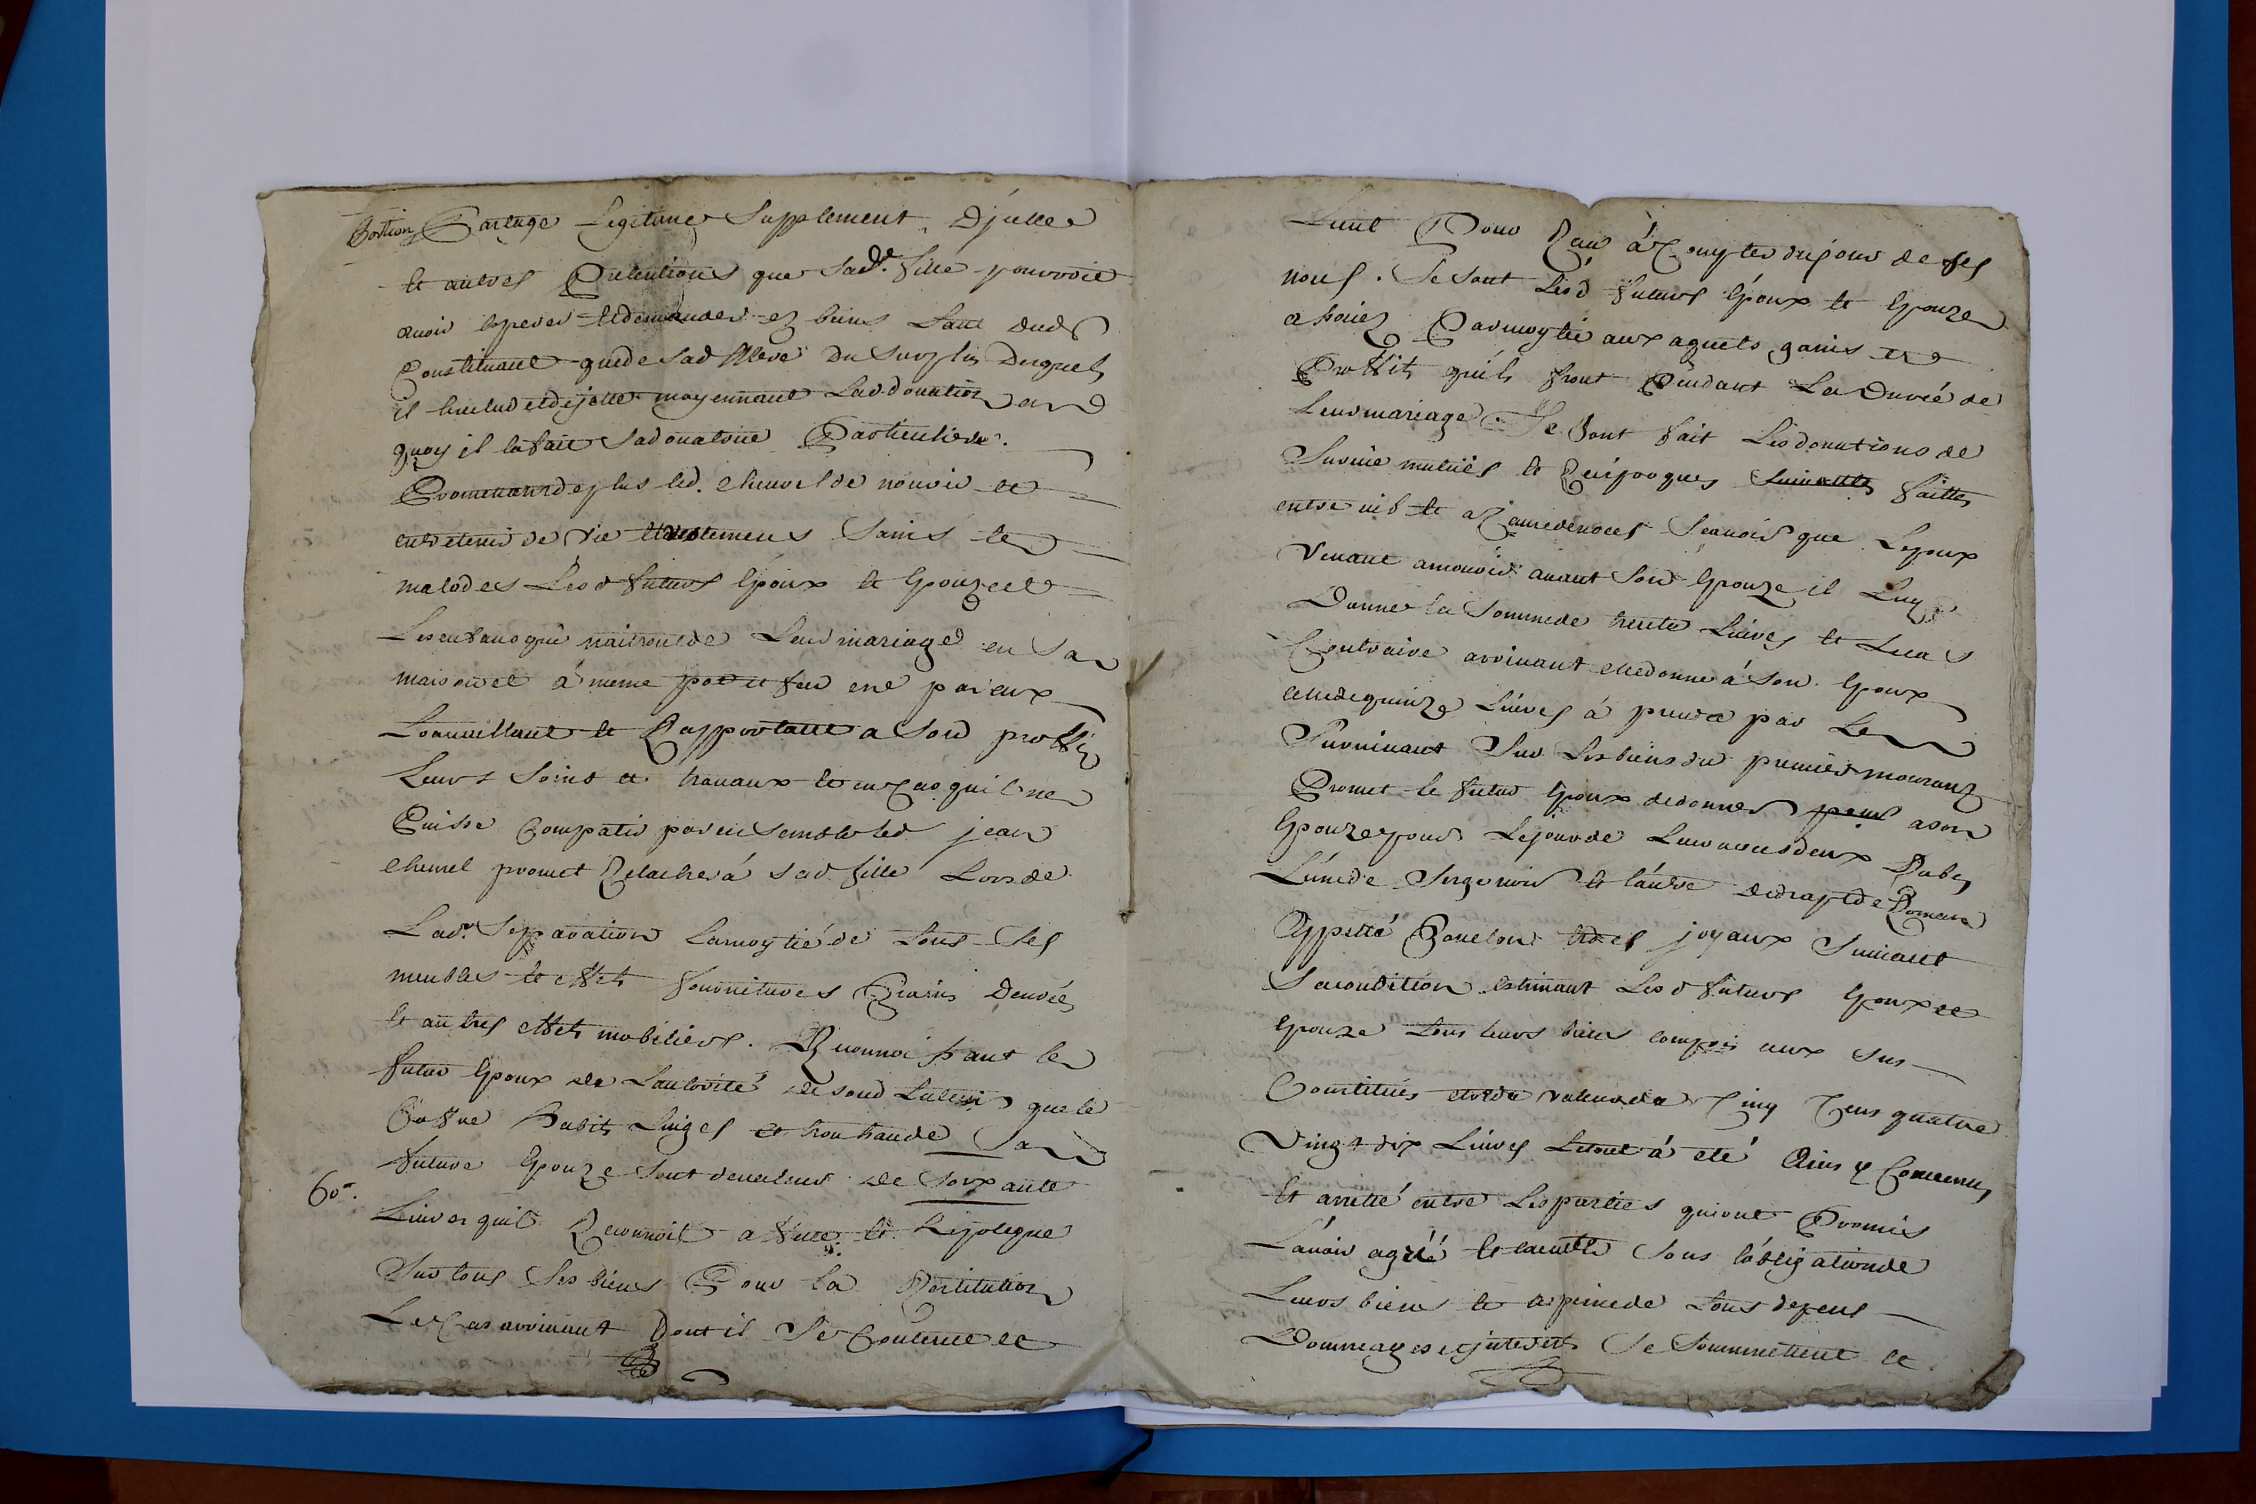 Portion Partage Legitime Supplement D'jcelle
et autres Pretentions que sad.e fille pourroit
avoir esperer et demander ez biens tant dud
Constituant que de sad mere du surplus duquel
il lexclud et dejette moyennant lad donation
quoy il la fait sa donatoire Particuliere.
Promettant de plus led. chemel de nourir et
entretenir de vie et vestemens sains et
malades Lesd futurs Epoux et Epouze et
Les enfans qui naitront de Leur mariage en sa
maison et à meme pot et feu ene par eux
Travaillant et Rapportant a son proffit
Leurs soins et travaux et en cas qu'il ne
Puisse Compatir par ensemble led jean
chemel promet Relacher á sad fille Lors de
Lad. separation La moytié de tous ses
meubles et effets fournitures Grains Denrées
et autres effets mobiliers. Reconnoissant le
futur Epoux de L'autorité de sond que le
Coffre habits Linges et trouhaude sa
future Epouze sont de valeur de soixante
60.
Livres quil Reconnoit a et hipoteque
sur tous ses biens Pour la Restitution
Le Cas arrivant Dont il se Contente et
tient Pour Reçu à Compter du jour de ses
noces. Se sont Lesd futurs Epoux et Epouze
associez Par moytié aux aquets gains et
Proffits qu'ils feront Pendant La Durée de
Leur mariage Se sont fait Les donations de
survie mutuels et Reciproques faittes
entre vifs et a Cause de noces scavoir que L'epoux
venant a mourir avant son Epouze il Luy
Donne la somme de trente Livres et Lecas
Contraire arrivant elle donne á son Epoux
celle de quinze Livres á prendre par Le
survivant sur Les biens du premier mourant
Promet le futur Epoux de donner a son
Epouze pour Le jour de Leur noces deux Robes
L'une de serge noir et l'autre de drap de Romans
Appellé Couleur et des joyaux suivant
sa condition estimant Lesd futurs Epoux et
Epouze tous leurs biens compris ceux sus
Constitués de valeur de Cinq Cens quatre
Vingt dix Livres Le tout à eté Ainsy Convenu
Et arretté entre Les parties qui ont Promis
L'avoir agréé et sous l'obligation de
Leurs biens et a peine de tous depens
Dommages et jnterets se soummettent et